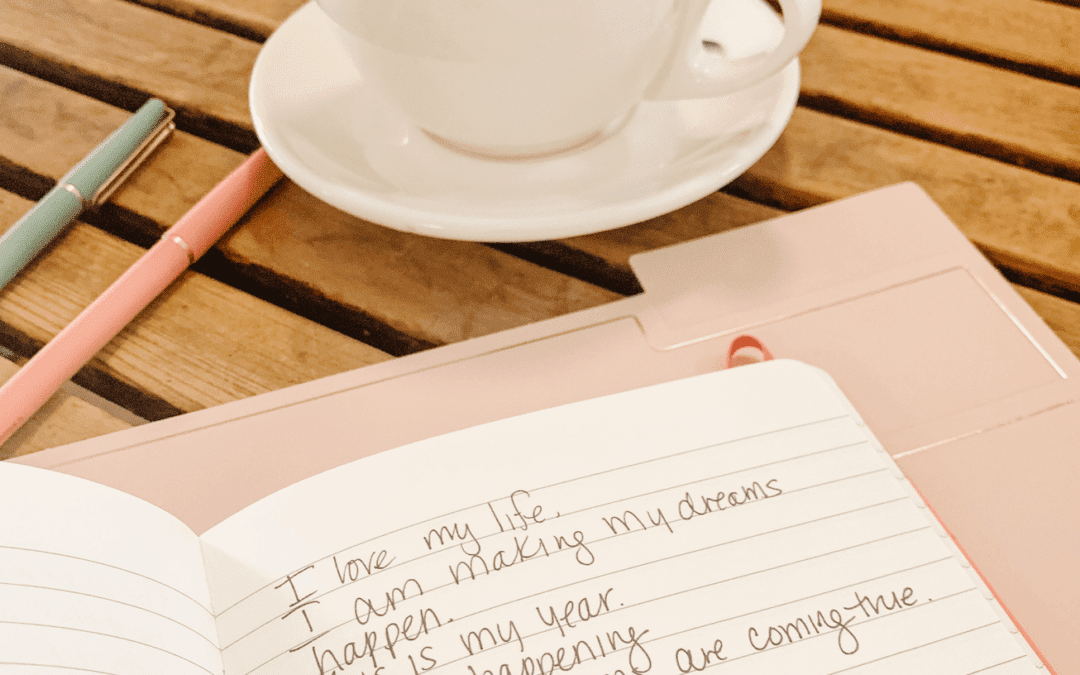 I love my life.
I am making my dreams
happen.
is my year.
happening
are coming true.